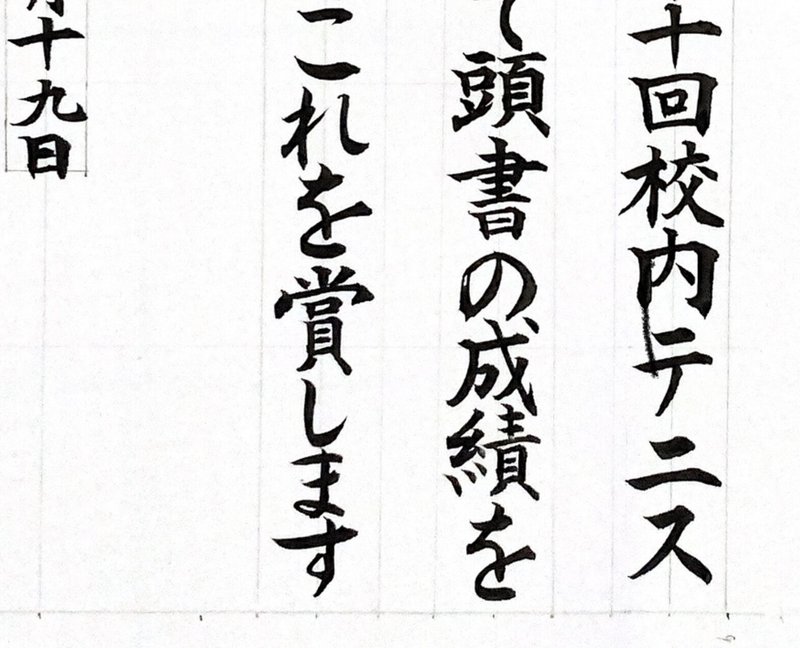 十回校内テニス
て頭書の成績を
これを賞します
月十九日